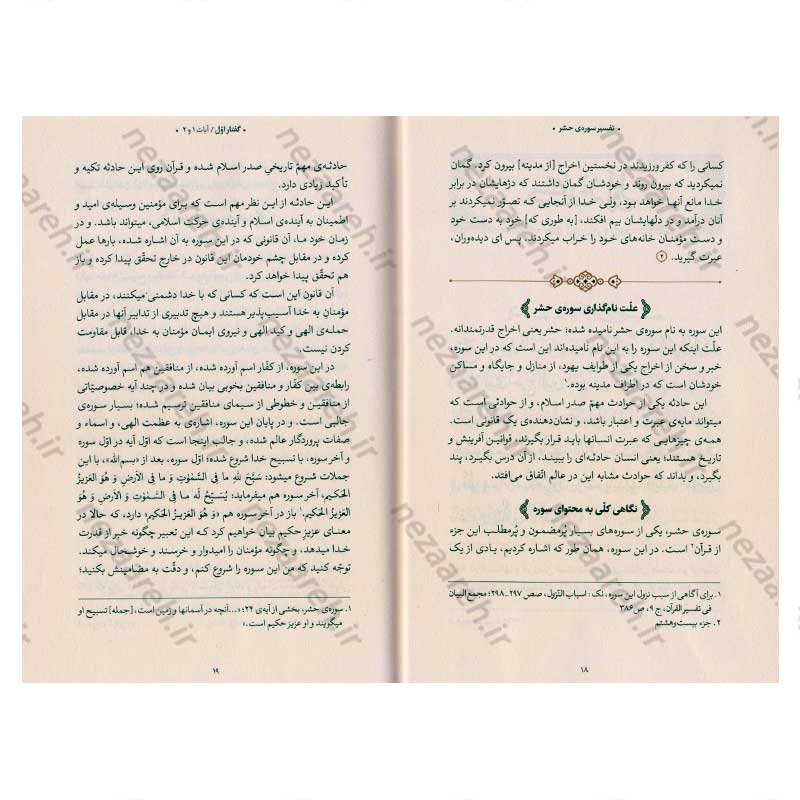 • تفسیر سوره‌ی حشر •
کسانی را که کفر ورزیدند در نخستین اخراج [از مدینه] بیرون کرد، گمان
نمیکردید که بیرون روند و خودشان گمان داشتند که دژهایشان در برابر
خدا مانع آنها خواهد بود، ولی خدا از آنجایی که تصوّر نمیکردند بر
آنان درآمد و در دلهایشان بیم افکند، [به طوری که] خود به دست خود
و دست مؤمنان خانه‌های خود را خراب میکردند، پس ای دیده‌وران،
عبرت گیرید. (۲)
علّت نام‌گذاری سوره‌ی حشر
این سوره به نام سوره‌ی حشر نامیده شده؛ حشر یعنی اخراج قدرتمندانه.
علّت اینکه این سوره را به این نام نامیده‌اند این است که در این سوره،
خبر و سخن از اخراج یکی از طوایف یهود، از منازل و جایگاه و مساکن
خودشان است که در اطراف مدینه بوده.۱
این حادثه یکی از حوادث مهمّ صدر اسلام، و از حوادثی است که
میتواند مایه‌ی عبرت و اعتبار باشد، و نشان‌دهنده‌ی یک قانونی است.
همه‌ی چیزهایی که عبرت انسانها باید قرار بگیرند، قوانین آفرینش و
تاریخ هستند؛ یعنی انسان حادثه‌ای را ببیند، از آن درس بگیرد، پند
بگیرد، و بداند که حوادث مشابه این در عالم اتّفاق می‌افتد.
نگاهی کلّی به محتوای سوره
سوره‌ی حشر، یکی از سوره‌های بسیار پُرمضمون و پُرمطلب این جزء
از قرآن۲ است. در این سوره، همان طور که اشاره کردیم، یادی از یک
۱. برای آگاهی از سبب نزول این سوره، نک: اسباب النّزول، صص ۲۹۷-۲۹۸؛ مجمع البیان
فی تفسیر القرآن، ج ۹، ص ۳۸۶
۲. جزء بیست‌وهشتم
۱۸
• گفتار اوّل / آیات ۱ و ۲ •
حادثه‌ی مهمّ تاریخیِ صدر اسلام شده و قرآن روی این حادثه تکیه و
تأکید زیادی دارد.
این حادثه از این نظر مهم است که برای مؤمنین وسیله‌ی امید و
اطمینان به آینده‌ی اسلام و آینده‌ی حرکت اسلامی، میتواند باشد. و در
زمان خود ما، آن قانونی که در این سوره به آن اشاره شده، بارها عمل
شده و در مقابل چشم خودمان این قانون در خارج تحقّق پیدا کرده و باز
هم تحقّق پیدا خواهد کرد.
آن قانون این است که کسانی که با خدا دشمنی میکنند، در مقابل
مؤمنانِ به خدا آسیب‌پذیر هستند و هیچ تدبیری از تدابیر آنها در مقابل
حمله‌ی الهی و کید الهی و نیروی ایمان مؤمنان به خدا، قابل مقاومت
کردن نیست.
در این سوره، از کفّار اسم آورده شده، از منافقین هم اسم آورده شده،
رابطه‌ی بین کفّار و منافقین بخوبی بیان شده و در چند آیه خصوصیّاتی
از منافقین و خطوطی از سیمای منافقین ترسیم شده؛ بسیار سوره‌ی
جالبی است. و در پایان این سوره، اشاره‌ی به عظمت الهی، و اسماء و
صفات پروردگار عالم شده، و جالب اینجا است که اوّل آیه در اوّل سوره
و آخر سوره، با تسبیح خدا شروع شده؛ اوّل سوره، بعد از «بسم‌الله»، با این
جملات شروع میشود: سَبَّحَ لِلَّهِ ما فِی السَّمٰوٰتِ وَ ما فِی الاَرضِ وَ هُوَ العَزیزُ
الحَکیم، آخر سوره هم میفرماید: یُسَبِّحُ لَه ما فِی السَّمٰوٰتِ وَ الاَرضِ وَ هُوَ
العَزیزُ الحَکیم.۱ باز در آخر سوره هم «وَ هُوَ العَزیزُ الحَکیم» دارد، که حالا در
معنای عزیز حکیم بیان خواهیم کرد که این تعبیر چگونه خبر از قدرت
خدا میدهد، و چگونه مؤمنان را امیدوار و خرسند و خوشحال میکند.
توجّه کنید که من این سوره را شروع کنم، و دقّت به مضامینش بکنید؛
۱. سوره‌ی حشر، بخشی از آیه‌ی ۲۴: «...آنچه در آسمانها و زمین است، [جمله] تسبیح او
میگویند و او عزیز حکیم است.»
۱۹
nezaareh.ir